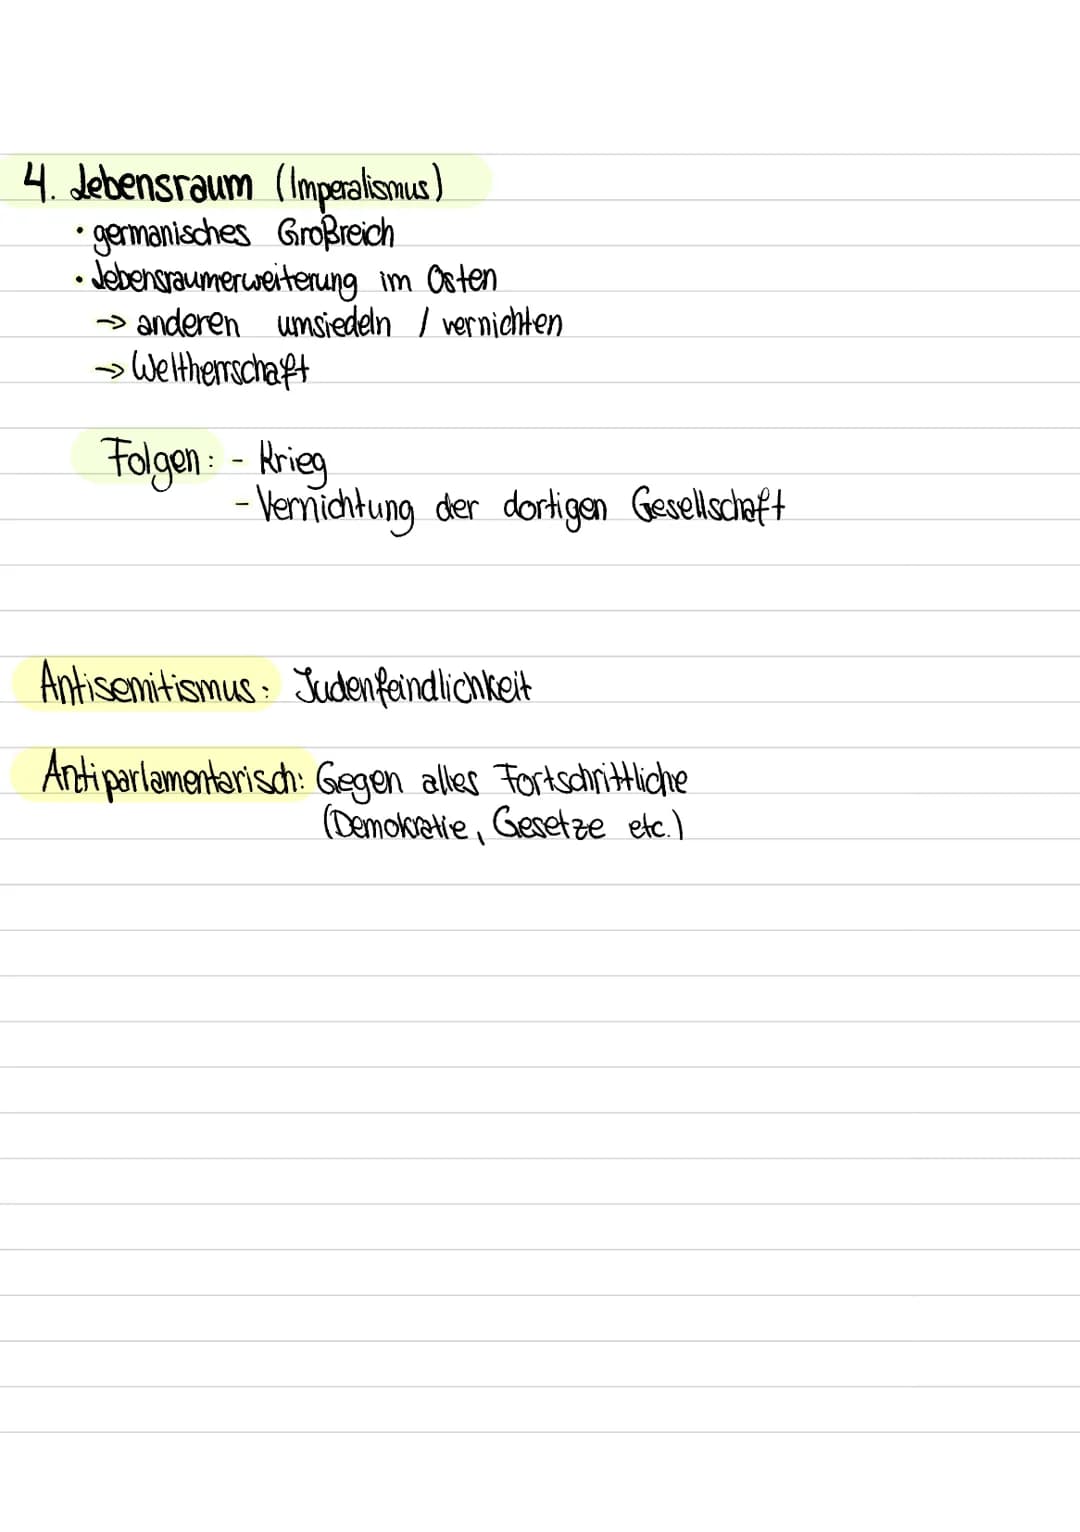 4. Lebensraum (Imperalismus)
• germanisches Großreich
• Lebensraumerweiterung im Osten
→ anderen umsiedeln / vernichten
→ Weltherrschaft
Folgen: - Krieg
- Vernichtung der dortigen Gesellschaft
Antisemitismus: Judenfeindlichkeit
Antiparlamentarisch: Gegen alles Fortschrittliche
(Demokratie, Gesetze etc.)